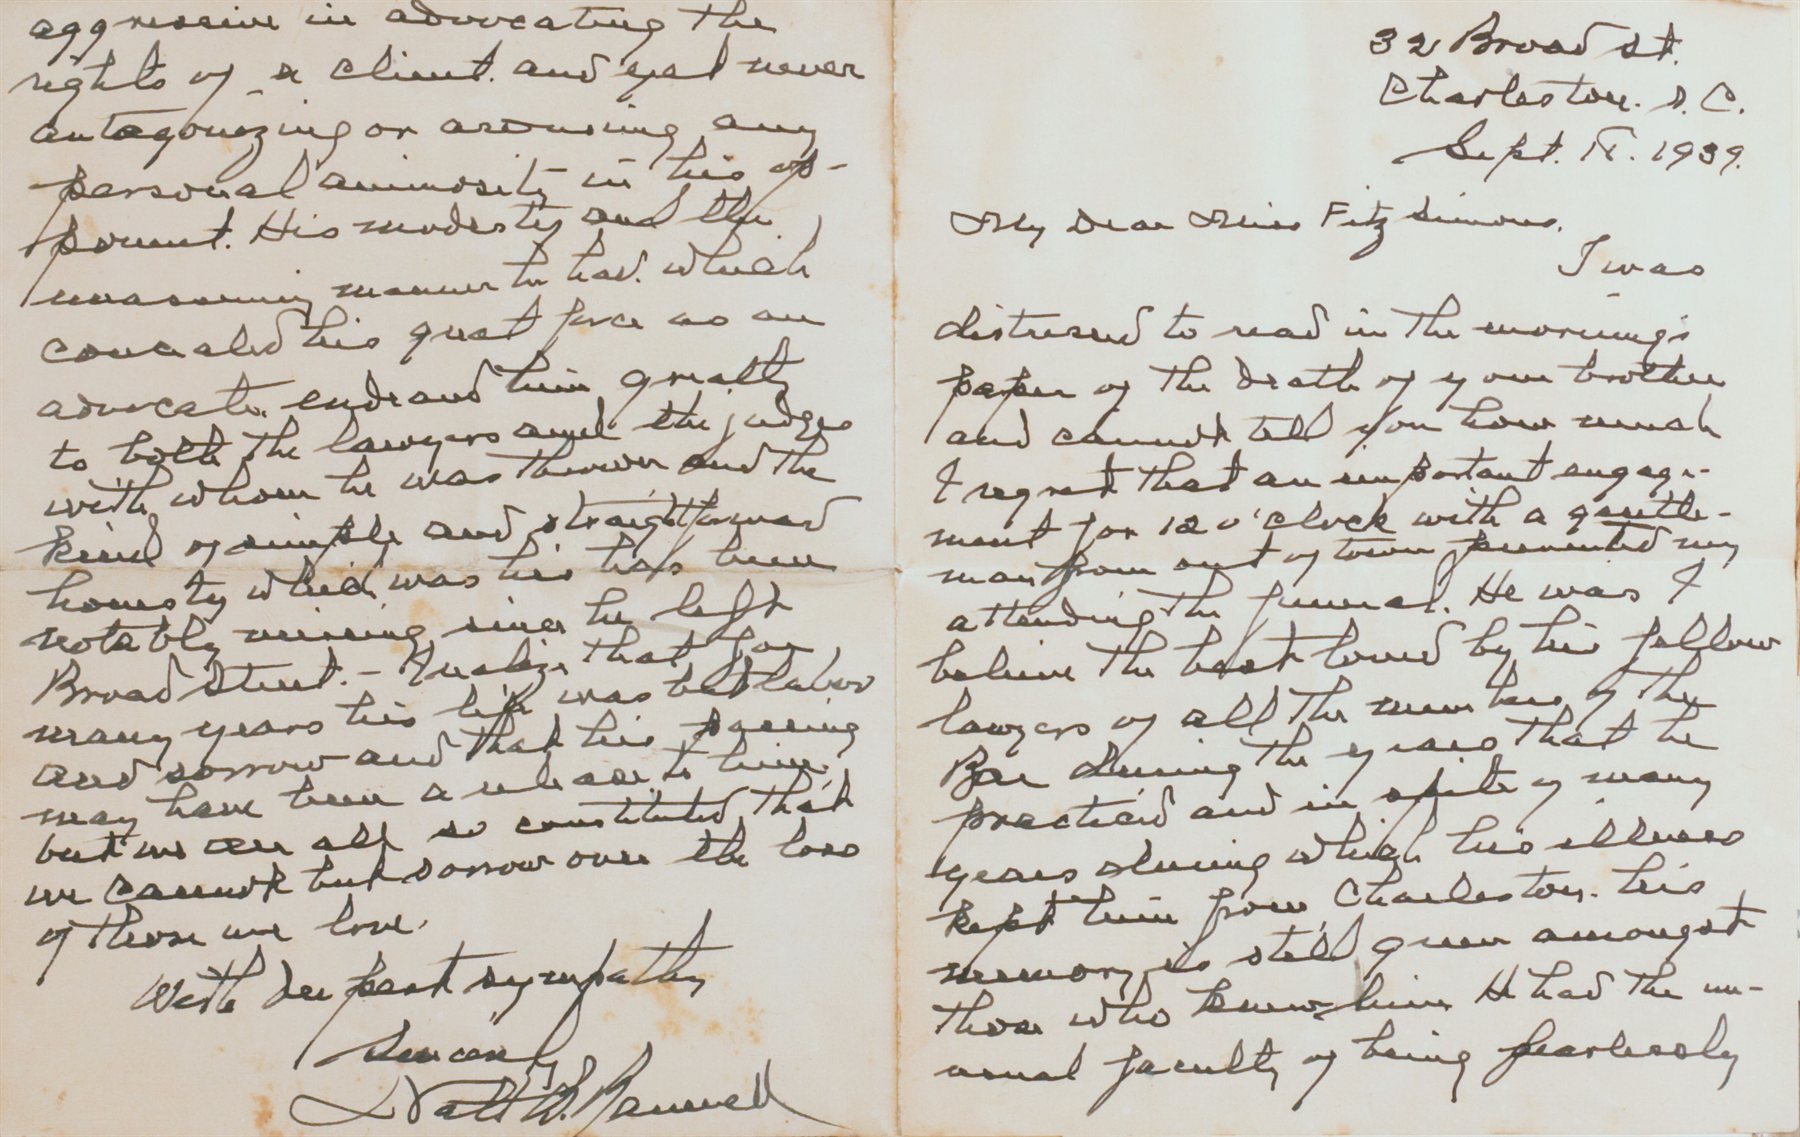 32 Broad St.
Charleston. S. C.
Sept. 1939.
My Dear Miss FitzSimons.
I was
distressed to read in the morning's
paper of the death of your brother
and cannot tell you how much
I regret that an important engage-
ment for 12 o'clock with a gentle-
man from out of town prevented my
attending the funeral. He was I
believe the best loved by his fellow
lawyers of all the members of the
Bar during the years that he
practiced and in spite of many
years during which his illness
kept him from Charleston. his
memory is still green amongst
those who knew him He had the un-
usual faculty of being fearlessly
aggressive in advocating the
rights of a client. and yet never
antagonizing or arousing any
personal animosity in his op-
ponent. His modesty and the
unassuming manner he had. which
concealed his great force as an
advocate. endeared him greatly
to both the lawyers and the judges
with whom he was thrown and the
kind of simple and straightforward
honesty which was his has been
notably missing since he left
Broad Street. - I realize that for
many years his life was but labor
and sorrow and that his passing
may have been a release to him,
but we are all so constituted that
we cannot but sorrow over the loss
of those we love.
With deepest sympathy
Sincerely
Nath B. Barnwell